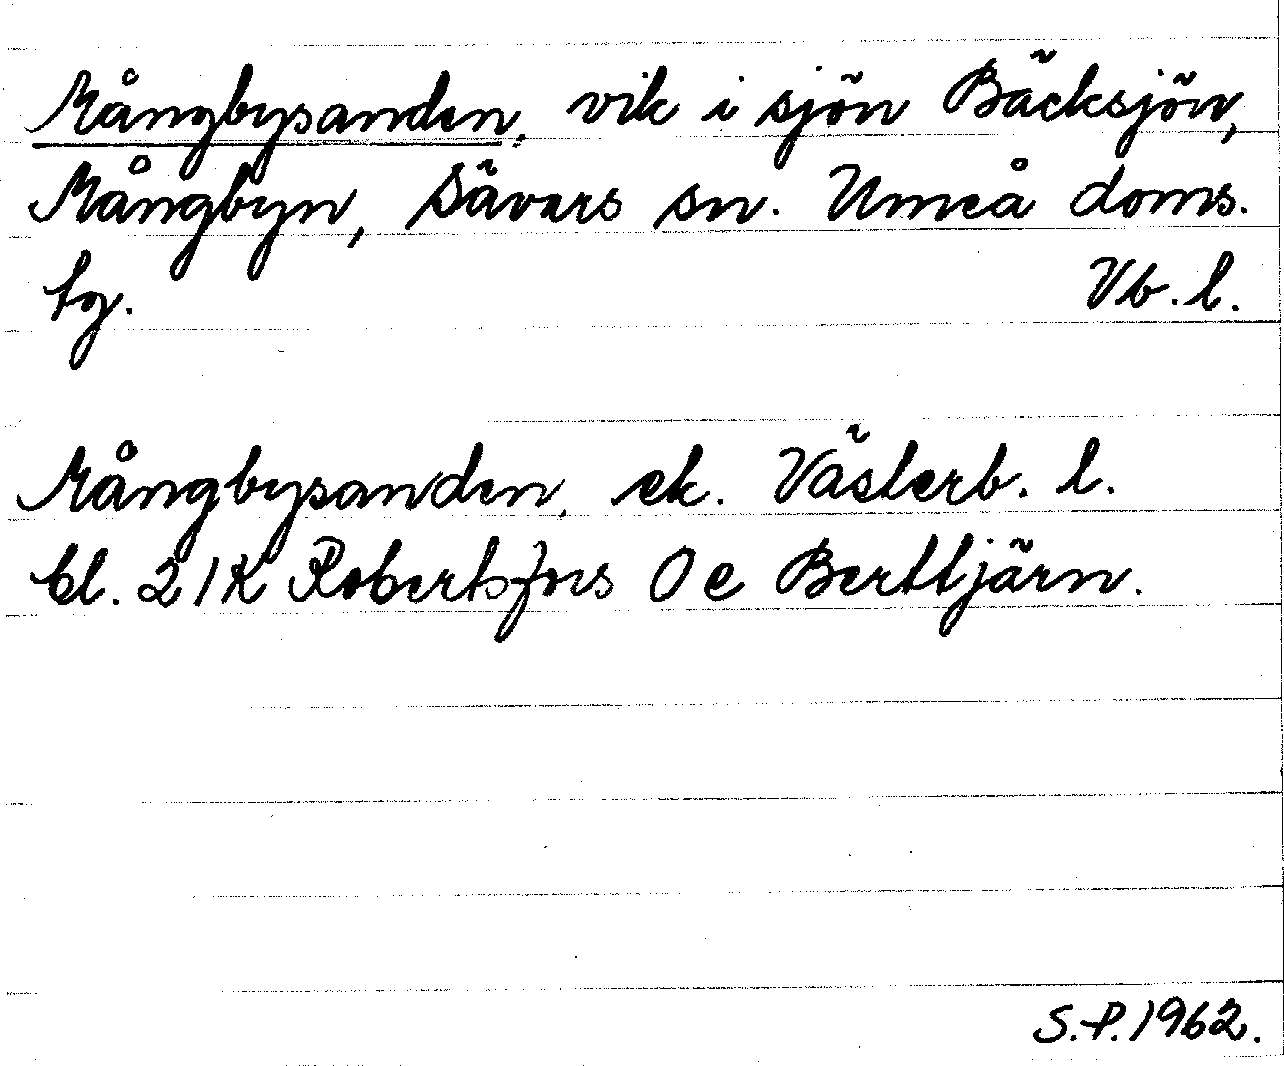 Mångbysanden, vik i sjön Bäcksjön,
Mångbyn, Sävars sn. Umeå doms.
tg. Vb. l.
Mångbysanden, ek. Västerb. l.
bl. 21K Robertsfors 0 e Berttjärn.
S.P. 1962.